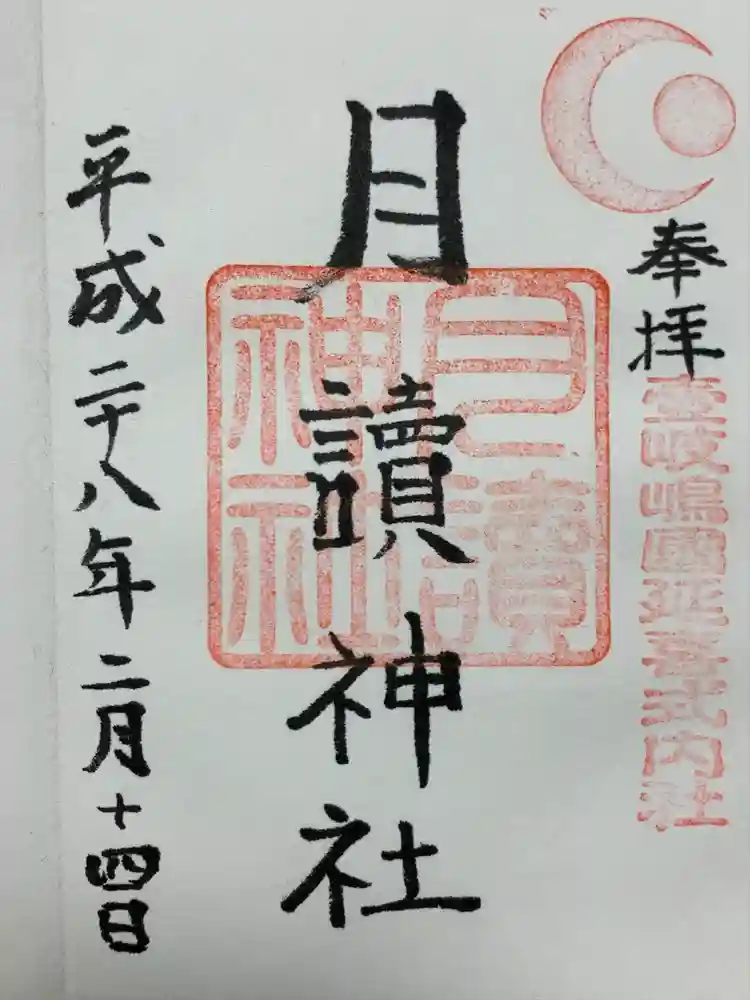 奉拝
壹岐嶋國延喜式内社
月讀神社
月讀
神社
平成二十八年二月十四日